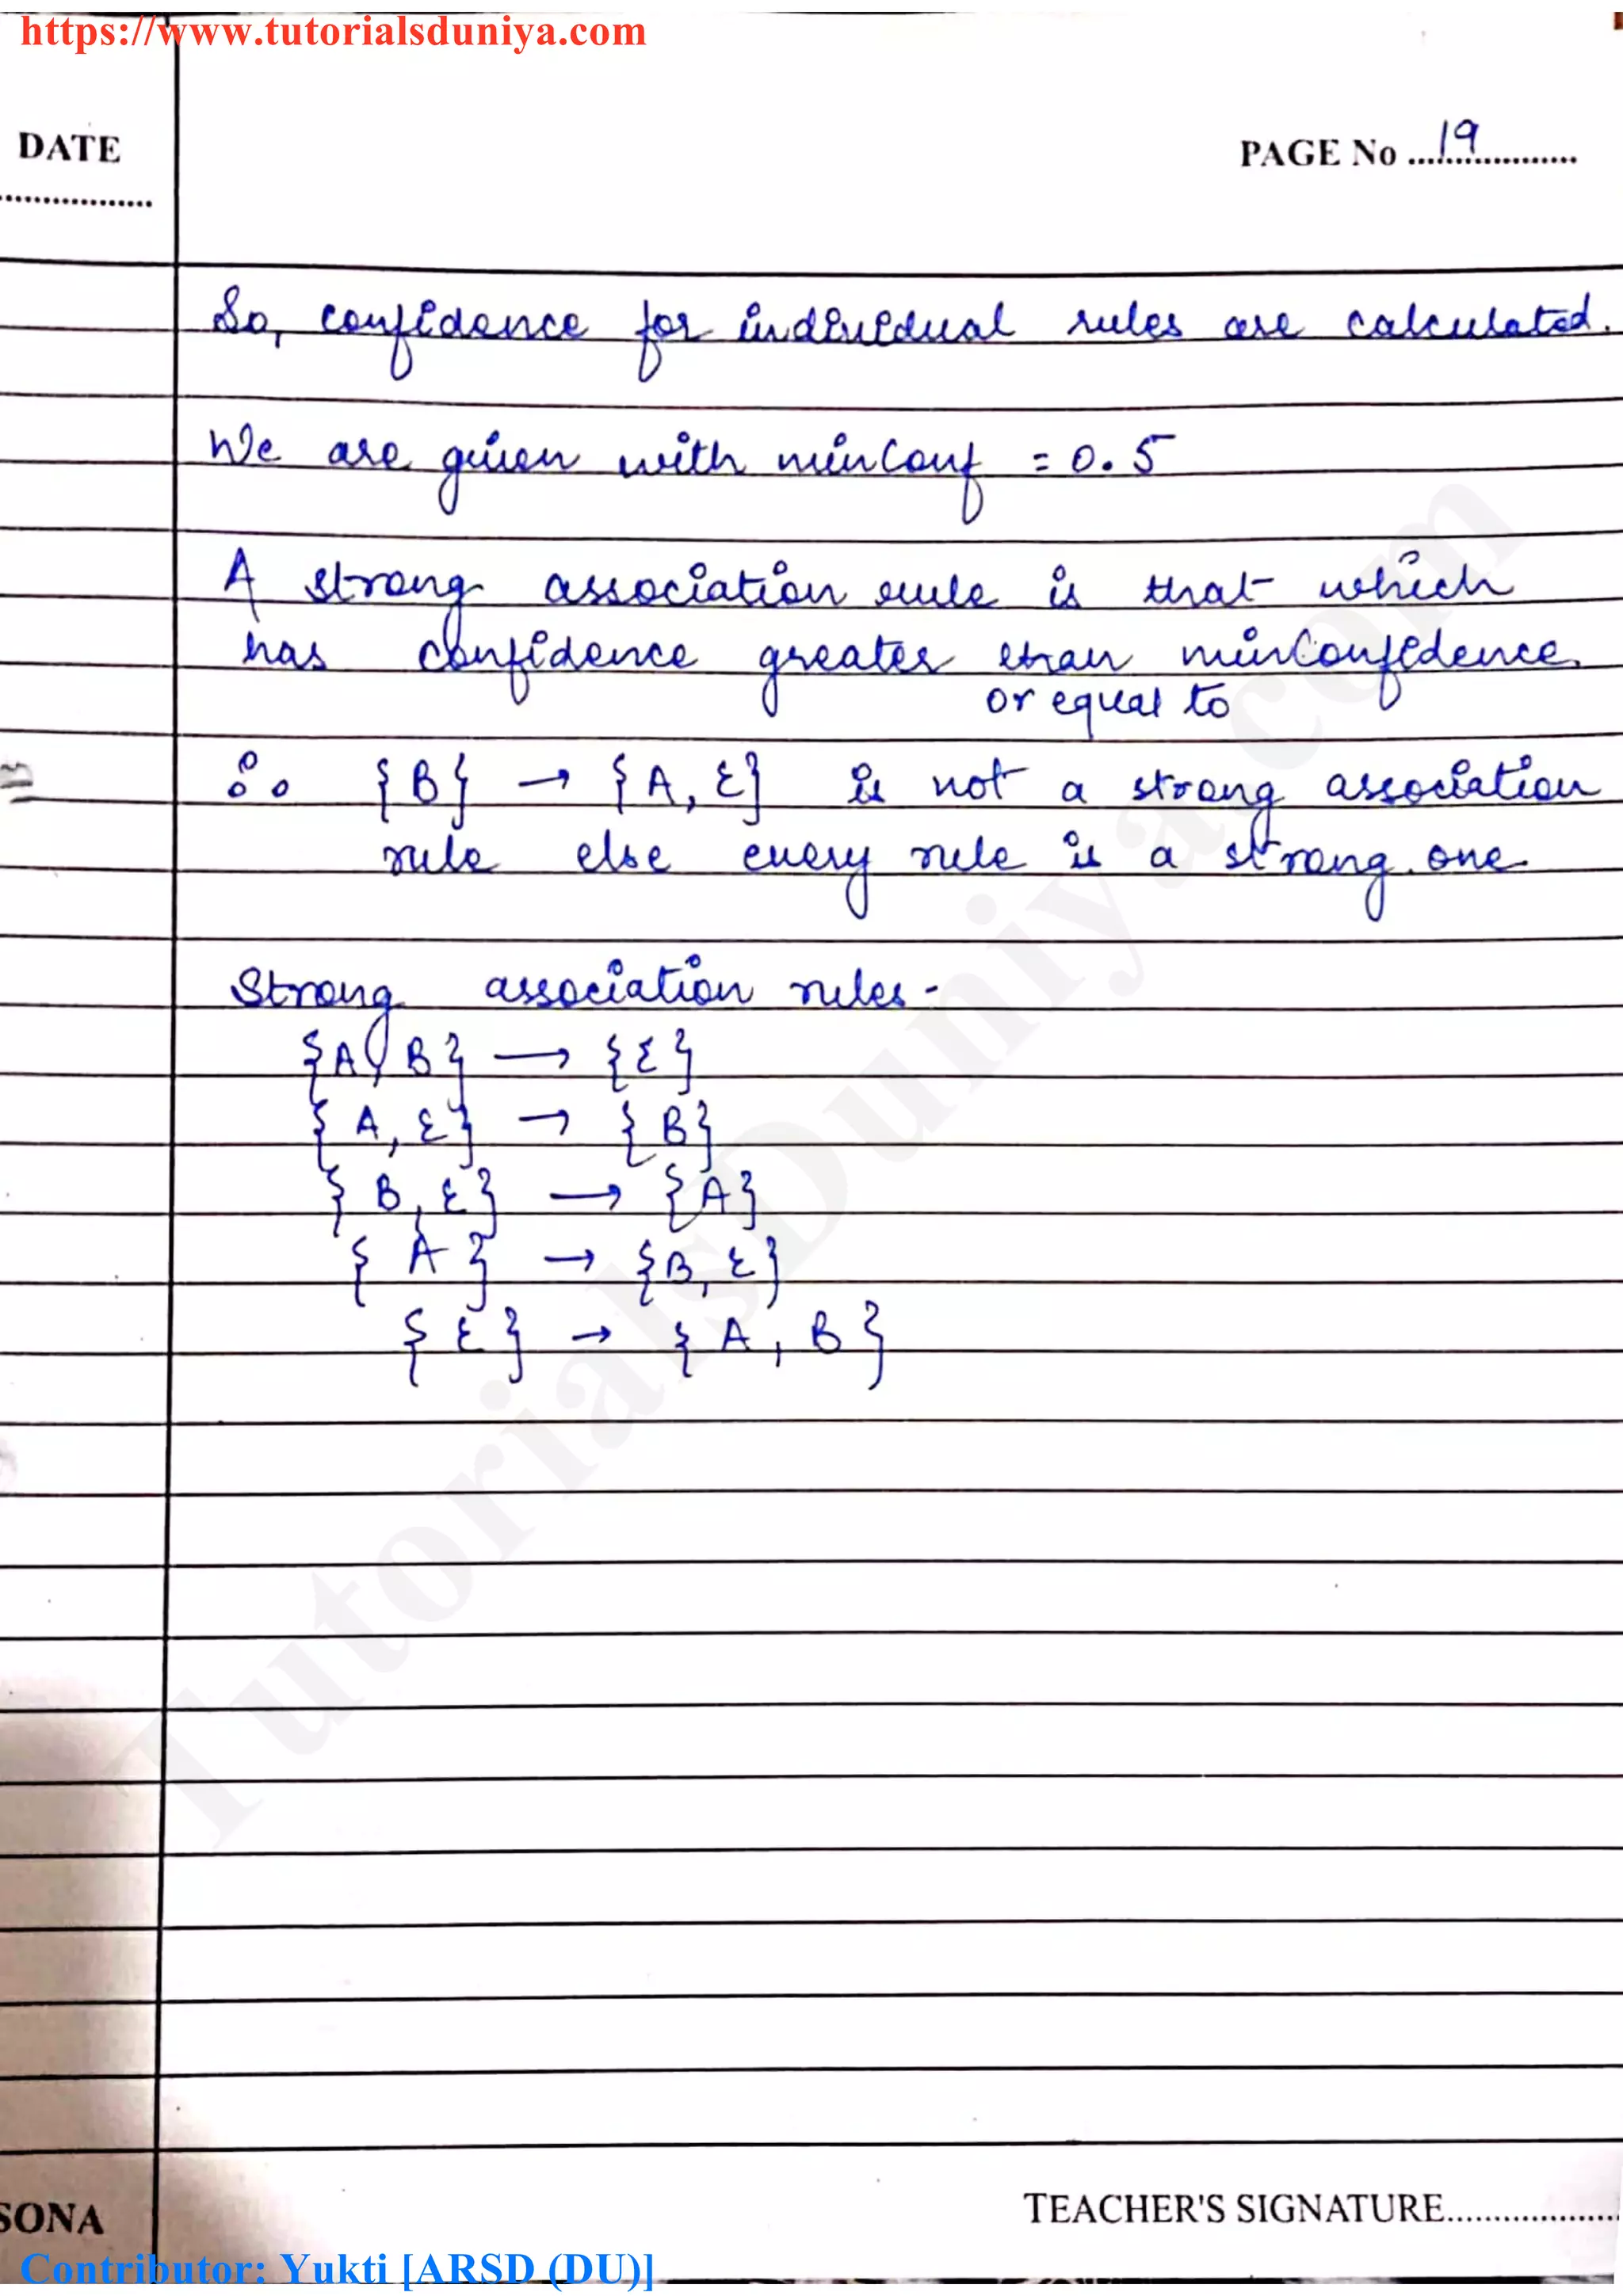 https://www.tutorialsduniya.com
DATE
PAGE No ....19....
So, confidence for individual rules are calculated.
We are given with minConf = 0.5
A strong association rule is that which
has confidence greater than minConfidence.
or equal to
∴ {B} → {A, E} is not a strong association
rule else every rule is a strong one.
Strong association rules -
{A, B} → {E}
{A, E} → {B}
{B, E} → {A}
{A} → {B, E}
{E} → {A, B}
TutorialsDuniya.com
TEACHER'S SIGNATURE....................
SONA
Contributor: Yukti [ARSD (DU)]